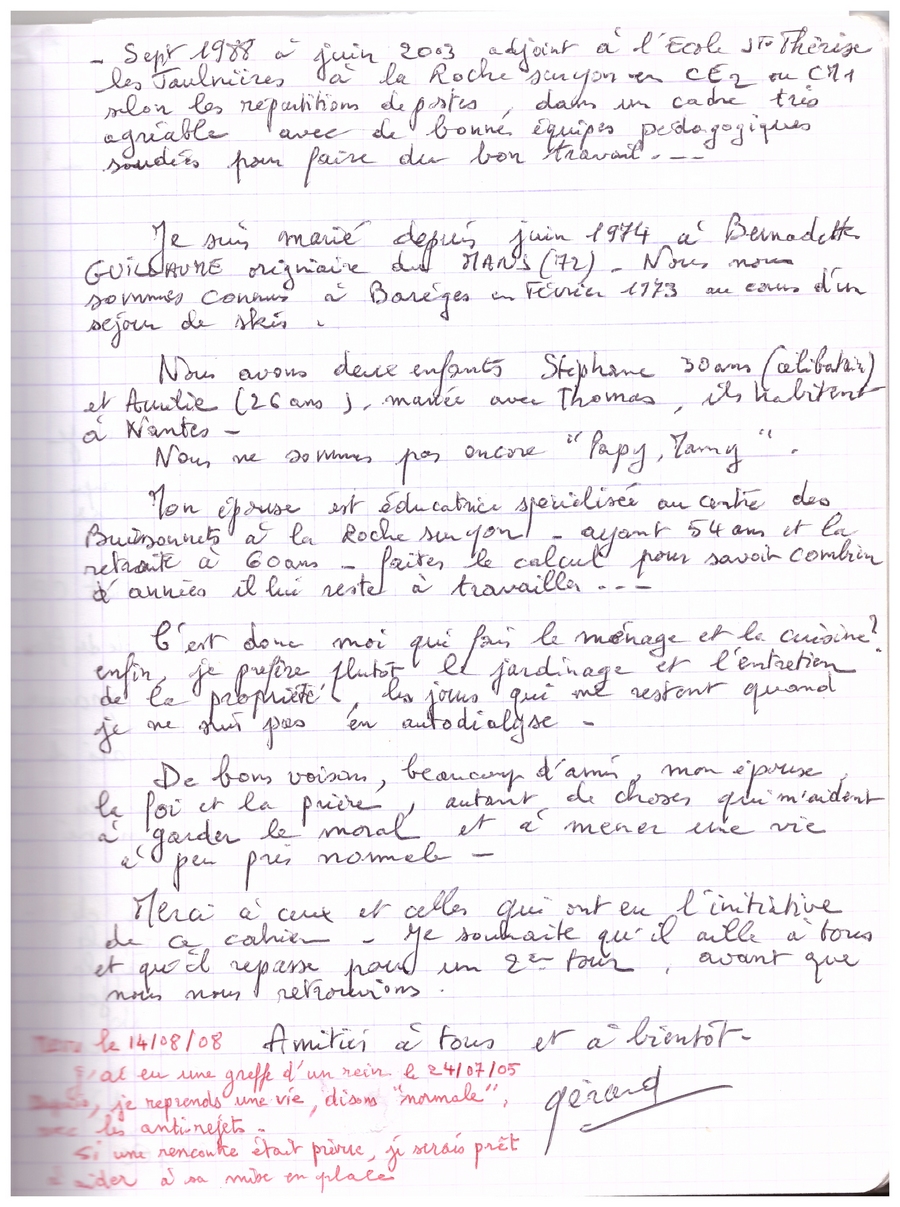 - Sept 1988 à juin 2003 adjoint à l'Ecole Ste Thérèse
les Jaulnières à la Roche sur yon en CE2 ou CM1
selon les répartitions de postes, dans un cadre très
agréable avec de bonnes équipes pédagogiques
soudées pour faire du bon travail. ---
Je suis marié depuis juin 1974 à Bernadette
GUILLAUME originaire du MANS (72) - Nous nous
sommes connus à Barèges en Février 1973 au cours d'un
séjour de skis.
Nous avons deux enfants Stéphane 30 ans (célibataire)
et Aurélie (26 ans), mariée avec Thomas, ils habitent
à Nantes -
Nous ne sommes pas encore "Papy, Mamy".
Mon épouse est éducatrice spécialisée au centre des
Buissonnets à la Roche sur yon - ayant 54 ans et la
retraite à 60 ans - faites le calcul pour savoir combien
d'années il lui reste à travailler ---
C'est donc moi qui fais le ménage et la cuisine?
enfin, je préfère plutôt le jardinage et l'entretien
de la propriété, les jours qui me restent quand
je ne suis pas en autodialyse -
De bons voisins, beaucoup d'amis, mon épouse,
la foi et la prière, autant de choses qui m'aident
à garder le moral et à mener une vie
à peu près normale -
Merci à ceux et celles qui ont eu l'initiative
de ce cahier - Je souhaite qu'il aille à tous
et qu'il repasse pour un 2em tour, avant que
nous nous retrouvions.
Amitiés à tous et à bientôt -
Gérard
le 14/08/08
J'ai eu une greffe d'un rein le 24/07/05
je reprends une vie, disons "normale",
avec les anti-rejets -
Si une rencontre était prévue, je serais prêt
à aider à sa mise en place